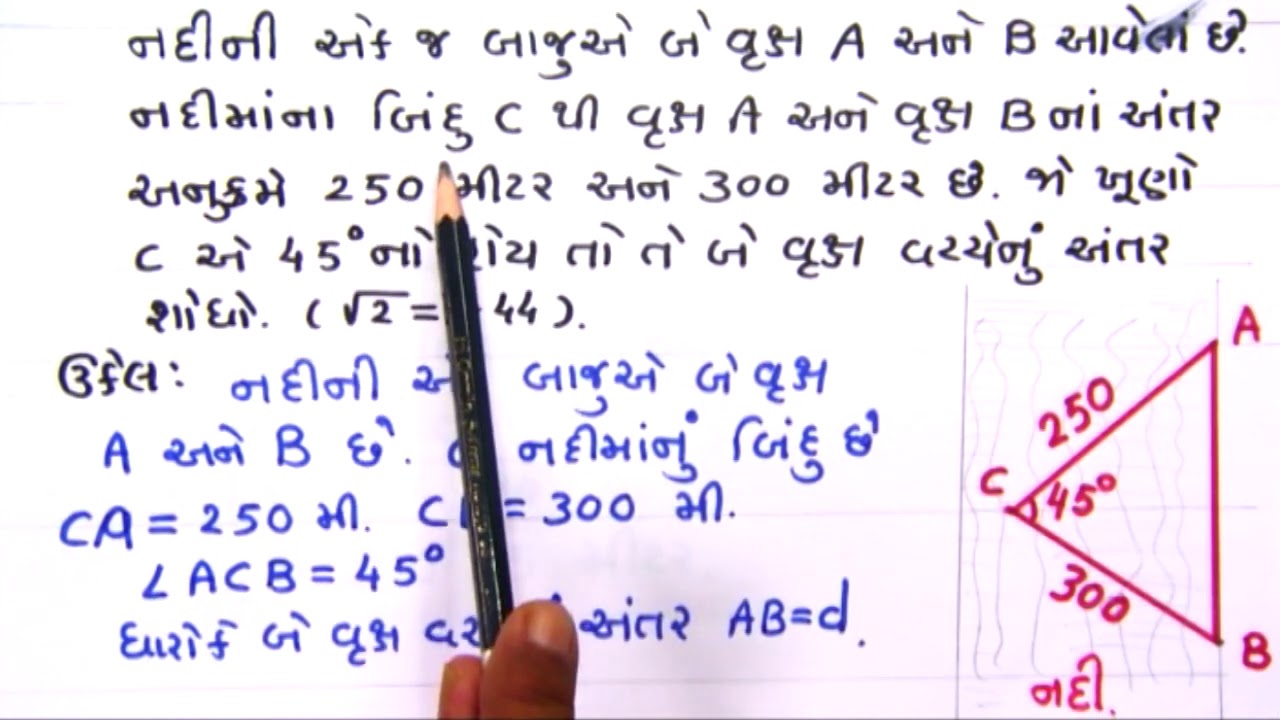 નદીની એક જ બાજુએ બે વૃક્ષ A અને B આવેલાં છે.
નદીમાંના બિંદુ C થી વૃક્ષ A અને વૃક્ષ B નાં અંતર
અનુક્રમે 250 મીટર અને 300 મીટર છે. જો ખૂણો
C એ 45° નો તો તે બે વૃક્ષ વચ્ચેનું અંતર
શોધો. (√2 = 44).
ઉકેલ: નદીની બાજુએ બે વૃક્ષ
A અને B છે. નદીમાંનું બિંદુ છે
CA = 250 મી. = 300 મી.
∠ACB = 45°
ધારોકે બે વૃક્ષ અંતર AB = d.
A
250
C 45°
300
B
નદી.